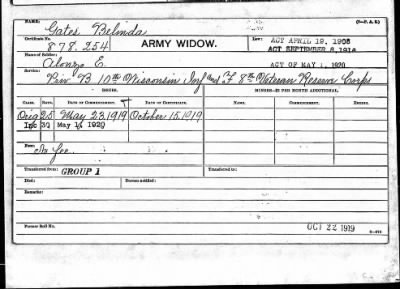 NAME: (3—P. A. S.)
Gates, Belinda
Certificate No. 878.254 ARMY WIDOW. Law: ACT APRIL 19, 1908
ACT SEPTEMBER 8, 1916
Name of Soldier: ACT OF MAY 1, 1920
Alonzo E.
Service:
Priv B 10th Wisconsin Inf and F 8th Veteran Reserve Corps
ISSUES. MINORS—$2 PER MONTH ADDITIONAL.
CLASS. RATE. DATE OF COMMENCEMENT. DATE OF CERTIFICATE. NAME. COMMENCEMENT. ENDING.
Orig 25 May 23, 1919 October 15, 1919
Inc 30 May 1, 1920
Fees:
No fee
Transferred from: GROUP 1 Transferred to:
Died: Bureau notified:
Remarks:
Former Roll No. OCT 22 1919